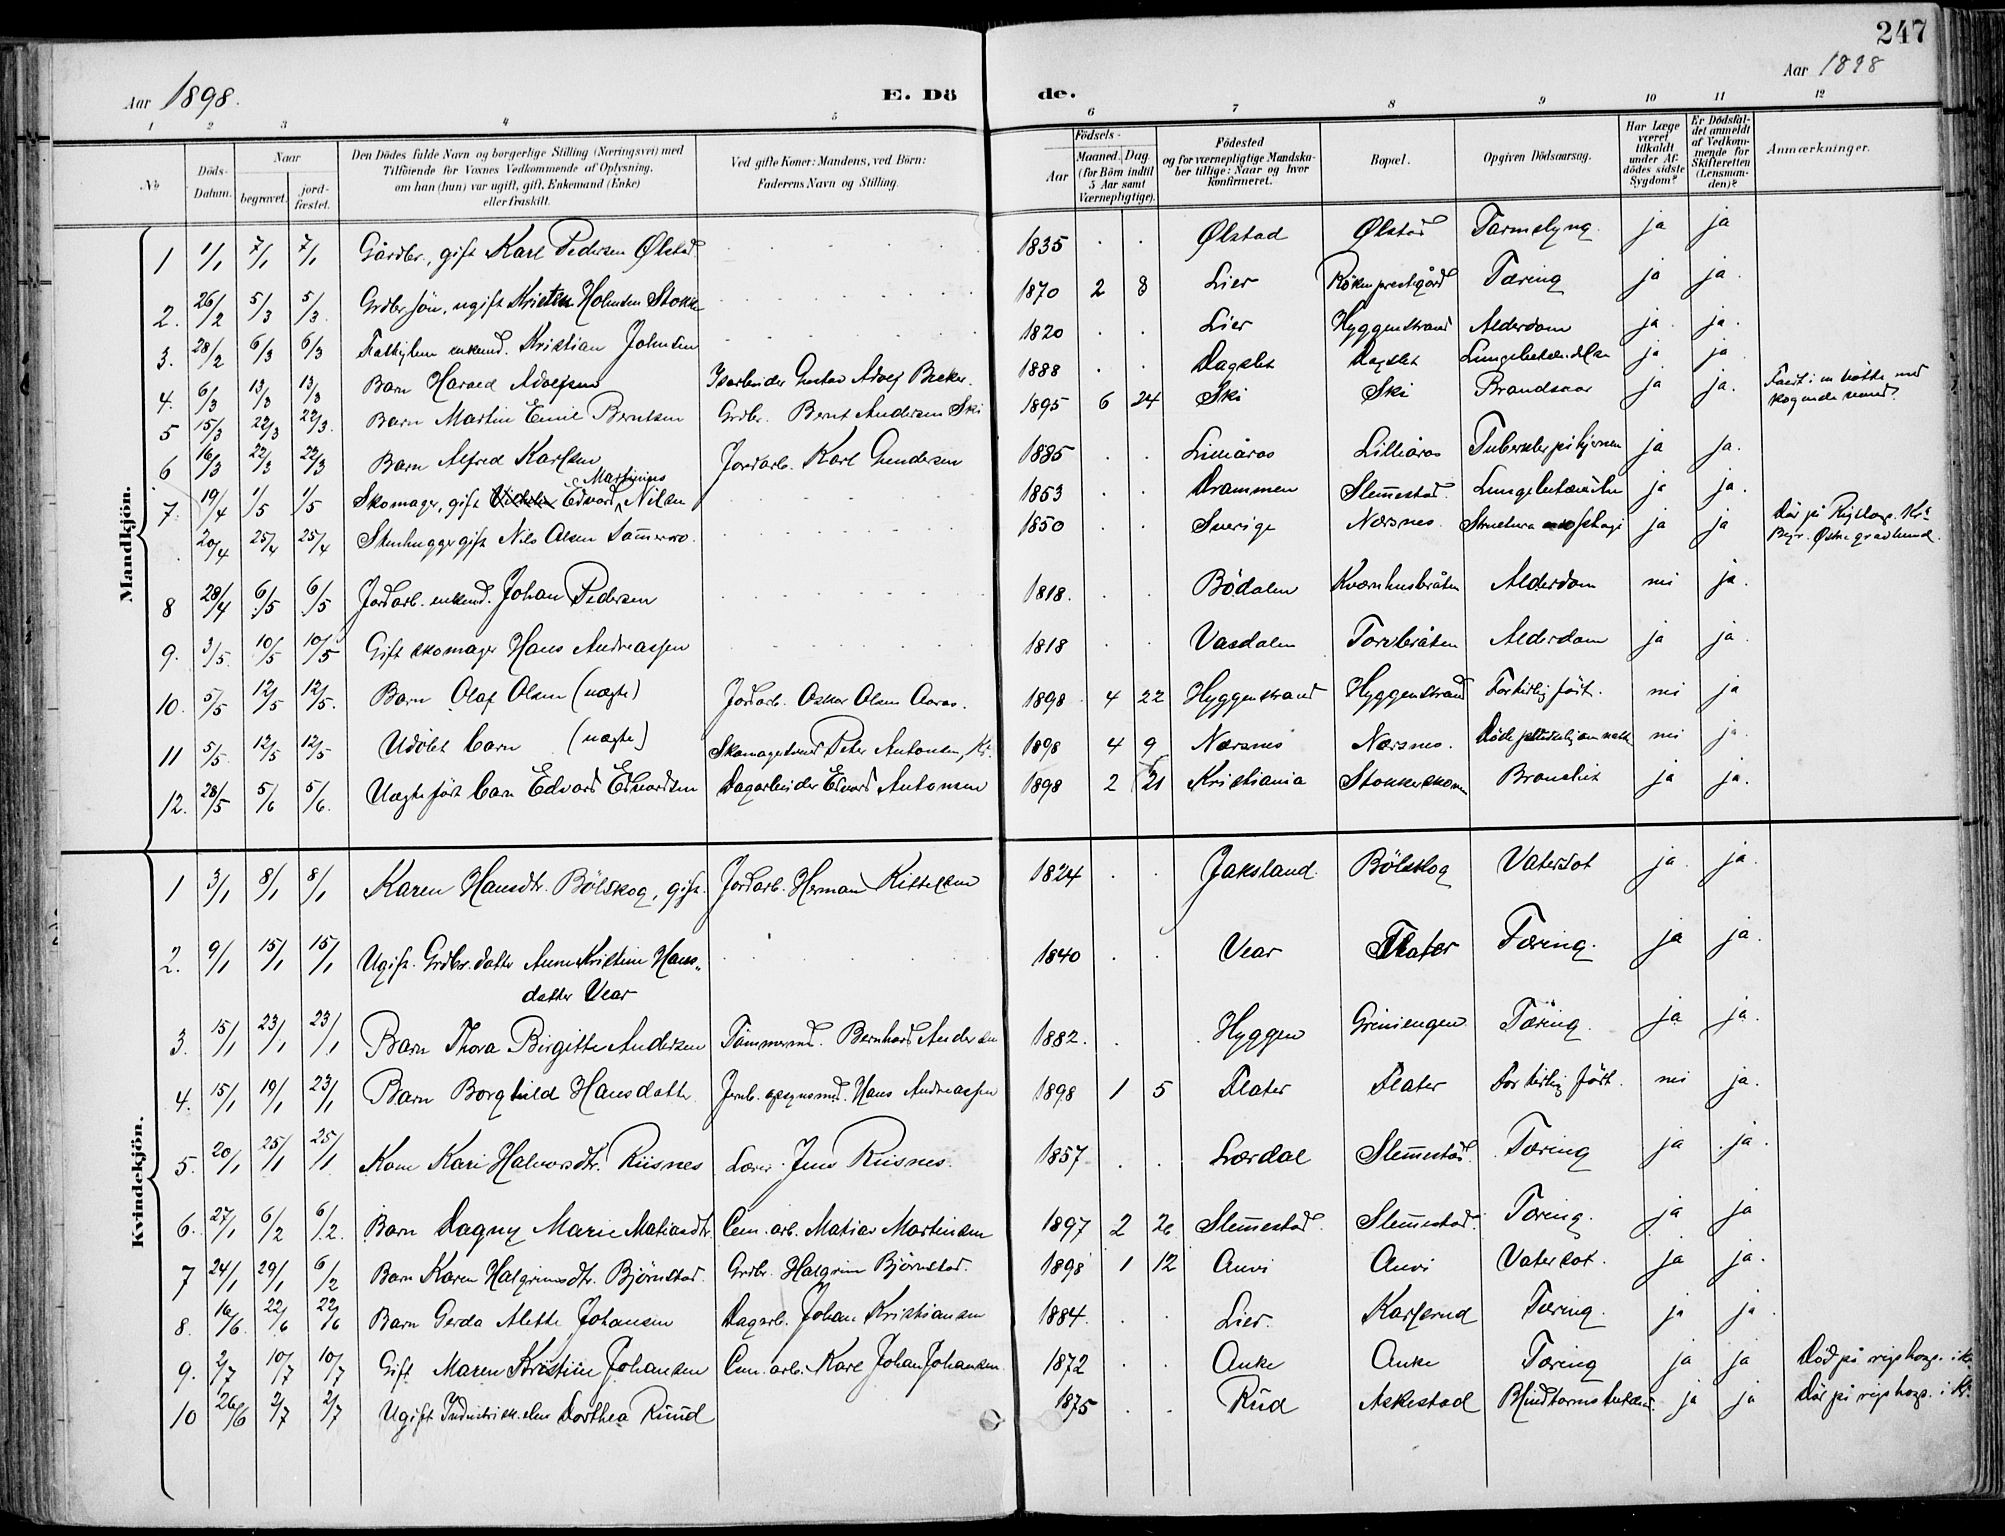 247
Aar 1898.
E. Döde.
Aar 1898
1 2 3 4 5 6 7 8 9 10 11 12
No
Döds-Datum.
Naar
begravet.
jord-fæstet.
Den Dödes fulde Navn og borgerlige Stilling (Næringsvei) med
Tilföiende for Voxnes Vedkommende af Oplysning,
om han (hun) var ugift, gift, Enkemand (Enke)
eller fraskilt.
Ved gifte Koner: Mandens, ved Börn:
Faderens Navn og Stilling.
Födsels-
Aar
Maaned. Dag.
(for Börn indtil
5 Aar samt
Værnepligtige).
Födested
og for værnepligtige Mandska-
ber tillige: Naar og hvor
konfirmeret.
Bopæl.
Opgiven Dödsaarsag.
Har Læge
været
tilkaldt
under Af-
dödes sidste
Sygdom?
Er Dödsfal-
det anmeldt
af Vedkom-
mende for
Skifteretten
(Lensman-
den)?
Anmærkninger.
Mandkjön.
1 1/1 7/1 7/1 Gårdbr., gift Karl Pedersen Ølstad 1835 Ølstad Ølstad Tarmslyng. ja ja
2. 26/2 5/3 5/3 Grdbr sön, ugift Kristen Holmsen Stokke 1870 2 8 Lier Röken prestigård Tæring ja ja.
3. 28/2 6/3 6/3 enkemd. Kristian Johnsen 1820 Lier Hyggenstrand Alderdom ja ja.
4. 6/3 13/3 13/3 Barn Harald Adolfsen Isarbeider Gustav Adolf Becker. 1888 Dagslet Dagslet ja ja
5 15/3 22/3 22/3. Barn Martin Emil Berntsen Grdbr. Bernt Andersen Ski 1895 6 24 Ski Ski Brandsaar ja ja. Faldt i en bötte med
kogende vand.
6 16/3 22/3 22/3 Barn Alfred Karlsen Jordarb. Karl Gundersen 1885 Liliåros Lilliåros Tuberkler på hjernen ja ja.
Martinius
7. 19/4 1/5 1/5 Skomager, gift Edvard Nilsen 1853 Drammen Slemmestad. Lungebetændelse ja ja.
20/4 25/4 25/4 Stenhugger gift Nils Olsen 1850 Sverige Nærsnes. ja ja Död på Rigshosp. Kr.a
Begr. Östre gravlund.
8 28/4 6/5 6/5 Jordarb. enkemd. Johan Pedersen 1818. Bödalen Kværnhusbråten Alderdom nei ja.
9. 3/5. 10/5 10/5 Gift skomager Hans Andreassen 1818 Vasdalen Torvbråten Alderdom ja ja.
10. 5/5 12/5 12/5. Barn Olaf Olsen (uægte) Jordarb. Oskar Olsen Aaros. 1898 4 22 Hyggenstrand Hyggenstrand For tidlig född. nei ja
11 5/5. 12/5 12/5 Udöbt barn (uægte) Skomagersvend Peter Antonsen, Kr. 1898 4 9 Nærsnes Nærsnes. nei ja.
12. 28/5 5/6 5/6. Uægte född barn Edvard Edvardsen Dagarbeider Edvard Antonsen 1898 2 21 Kristiania Stokkerskoven Bronchit ja ja.
Kvindekjön.
1 3/1 8/1 8/1 Karen Hansdtr. Bölskog, gift. Jordarb. Herman Kittilsen 1824 Jaksland. Bölskog Vatersot ja ja.
2. 9/1 15/1 15/1 Ugift. Grdbr. datter Anne Kristine Hans-
datter Vear 1840 Vear Flater Tæring. ja ja.
3. 15/1 23/1 23/1 Barn Thora Birgitte Andersen Tömmermd. Bernhard Andersen 1882. Hyggen Grinsengen Tæring. ja ja.
4. 15/1 19/1 23/1 Barn Borghild Hansdatter Jernb. opsynsmd. Hans Andreassen 1898 1 5 Flater Flater For tidlig född. nei ja.
5. 20/1 25/1 25/1 Kone Kari Halvorsdtr. Riisnes Lærer Jens Riisnes. 1857 Lærdal Slemmestad. Tæring ja ja.
6. 27/1 6/2 6/2. Barn Dagny Marie Matiasdtr. Cem. arb. Matias Martinsen 1897 2 26 Slemmestad. Slemmestad. Tæring. ja ja
7 24/1 29/1 6/2 Barn Karen Halgrimsdtr. Björnstad. Grdbr. Halgrim Björnstad. 1898 1 12 Auvi Auvi Vatersot. ja ja.
8. 16/6. 22/6 22/6 Barn Gerda Alette Johansen Dagarb. Johan Kristiansen 1884. Lier. Karlsrud Tæring. ja ja.
9. 2/7 10/7 10/7 Gift Maren Kristine Johansen Cem. arb. Karl Johan Johansen. 1872 Auke Auke Tæring ja ja Död på rigshosp. i Kr.
10 26/6 2/7 2/7 Ugift Dorthea Ruud 1875 Rud Askestad ja ja Död på rigshosp. i Kr.